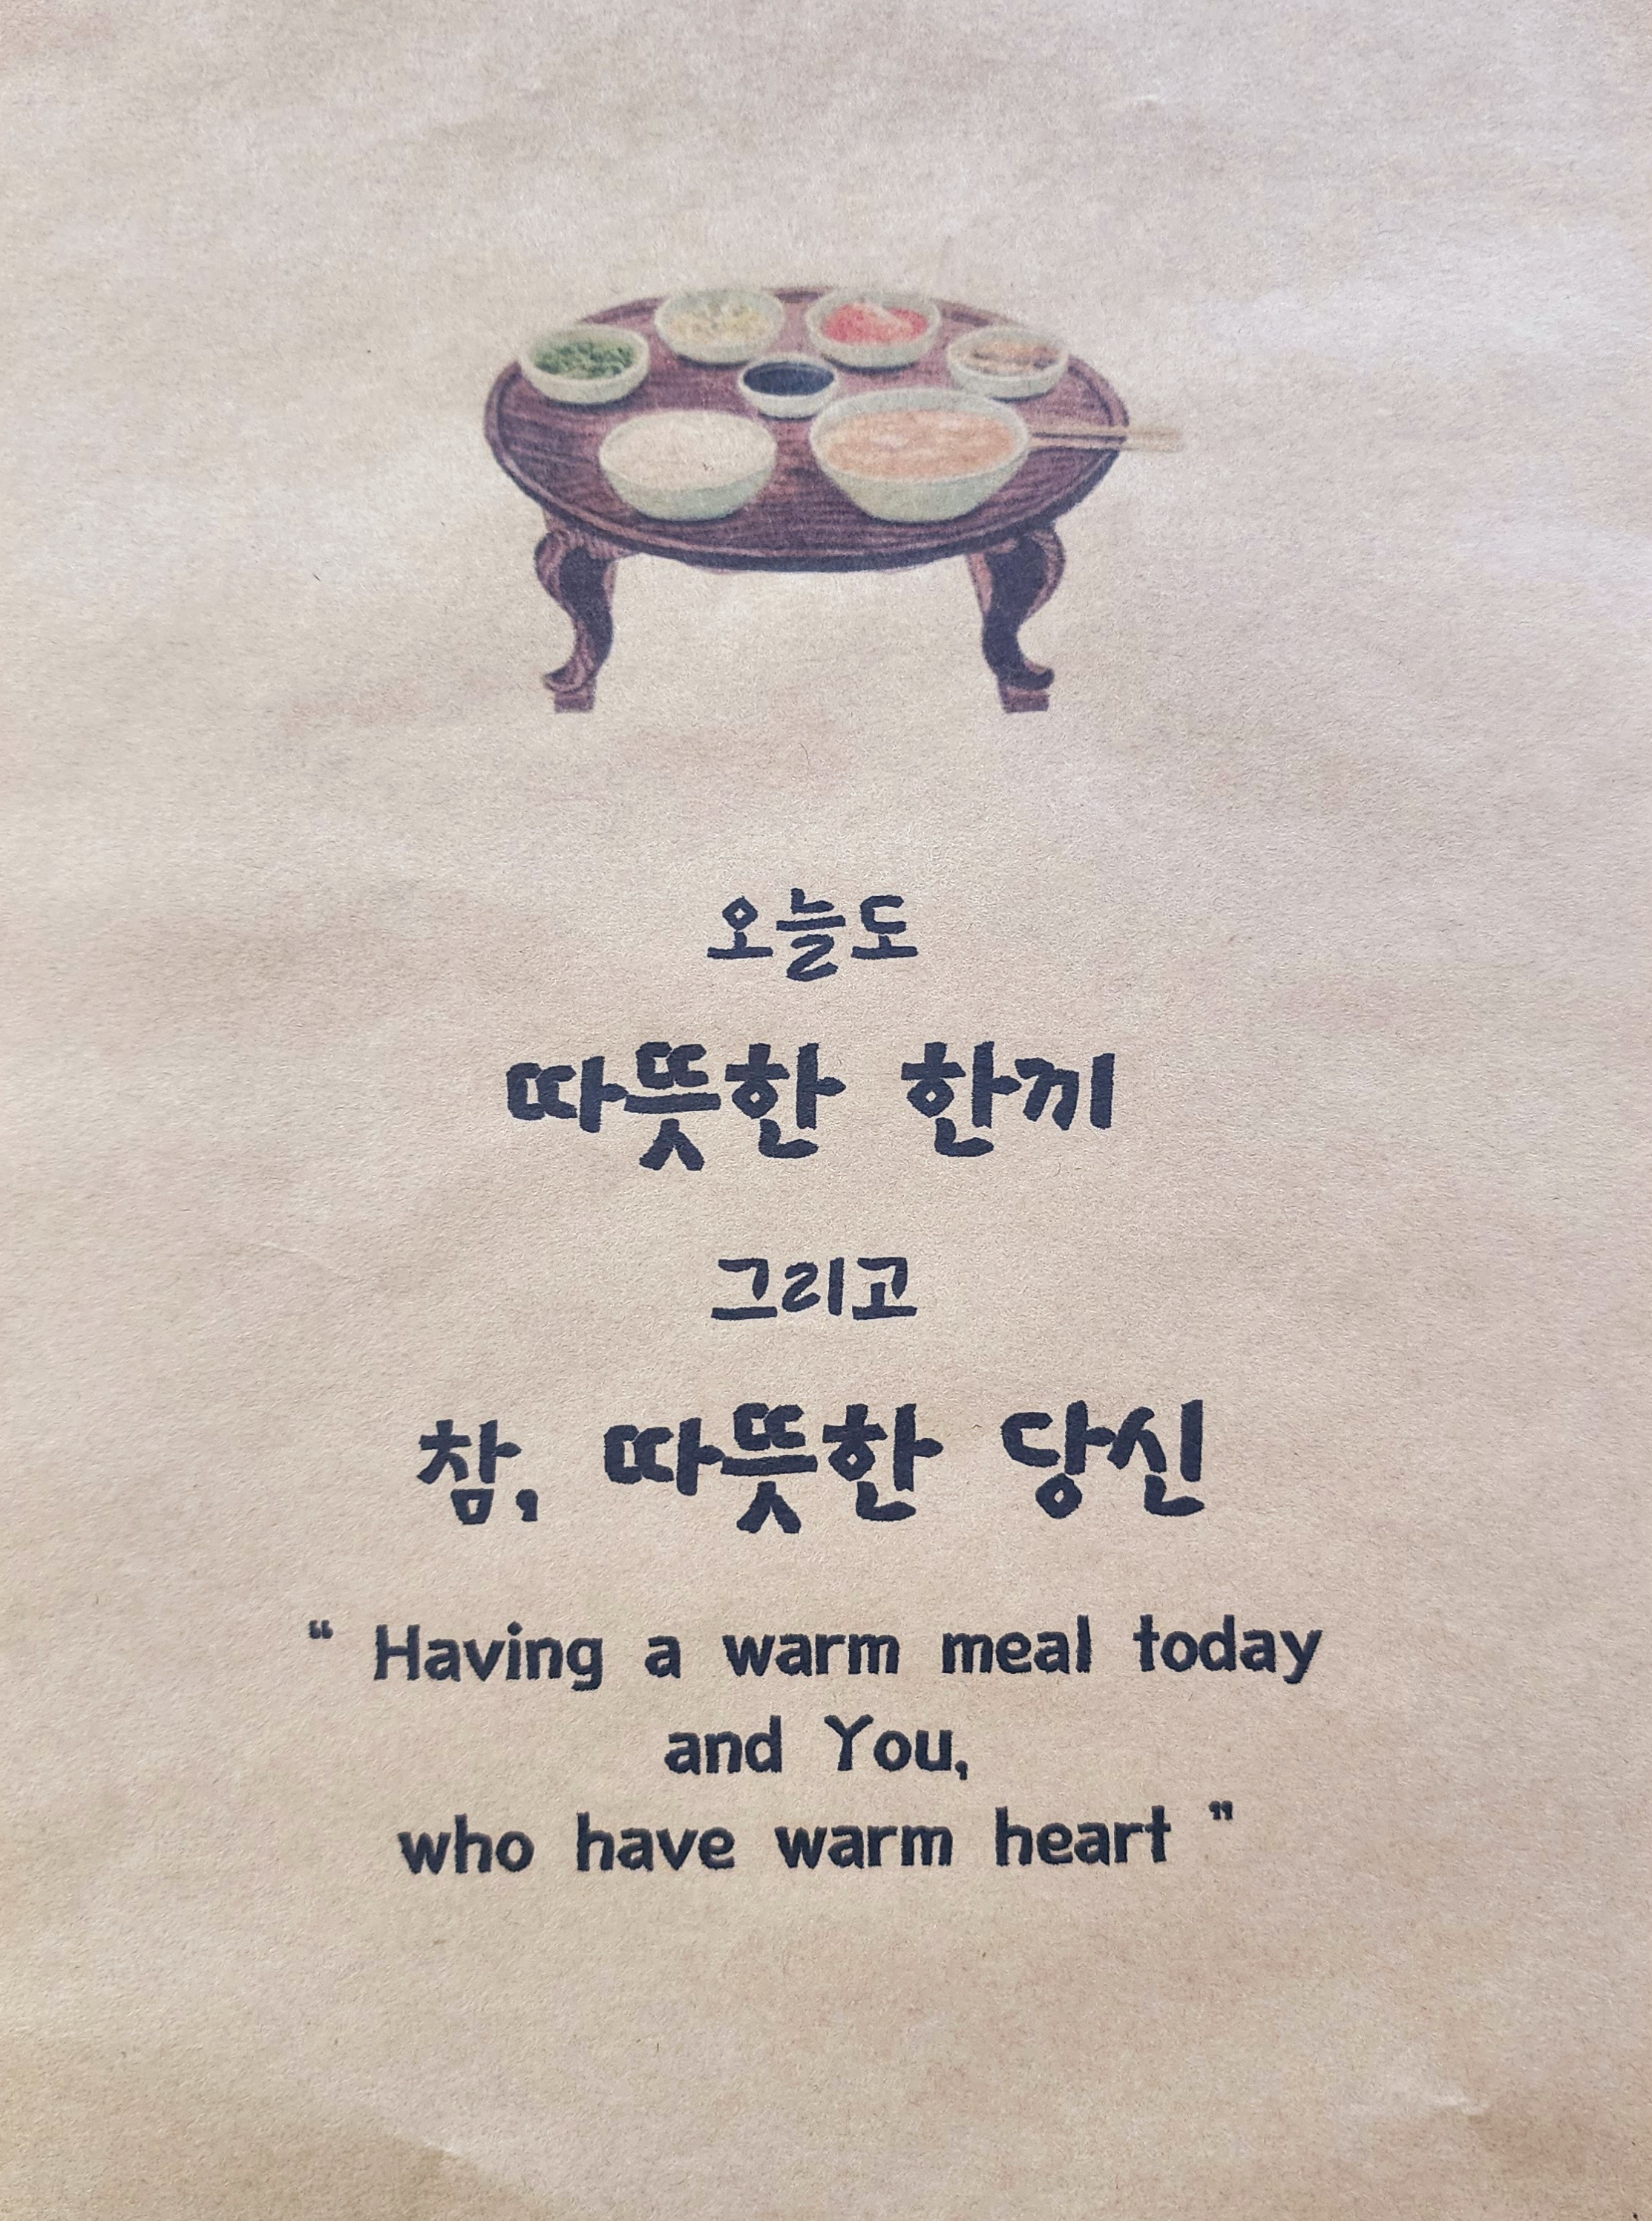 오늘도
따뜻한 한끼
그리고
참, 따뜻한 당신
“ Having a warm meal today
and You,
who have warm heart ”